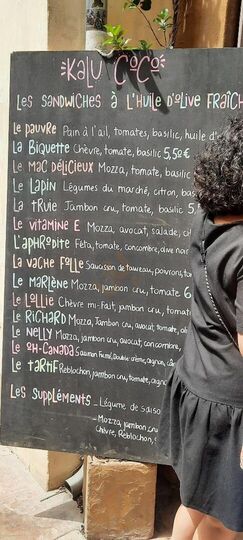 Kalu CoCo
Les sandwiches à l'huile d'olive fraîch
Le pauvre Pain à l'ail, tomates, basilic, huile d'
La Biquette Chèvre, tomate, basilic 5,50€
Le Mac Délicieux Mozza, tomate, basilic
Le Lapin Légumes du marché, citron, bas
La truie Jambon cru, tomate, basilic 5,
Le vitamine E Mozza, avocat, salade, cit
L'aphrodite Feta, tomate, concombre, olive noir
La vache folle Saucisson de taureau, poivrons, to
Le Marlène Mozza, jambon cru, tomate 6
Le Lollie Chèvre mi-fait, jambon cru, tomat
Le Richard Mozza, Jambon cru, avocat, tomate, ol
Le Nelly Mozza, jambon cru, avocat, concombre,
Le Oh-Canada Saumon fumé, Double crème, oignon,
Le Tartif Reblochon, jambon cru, tomate, oigno
Les Suppléments - Légume de saiso
- Mozza, jambon cru
Chèvre, Reblochon,